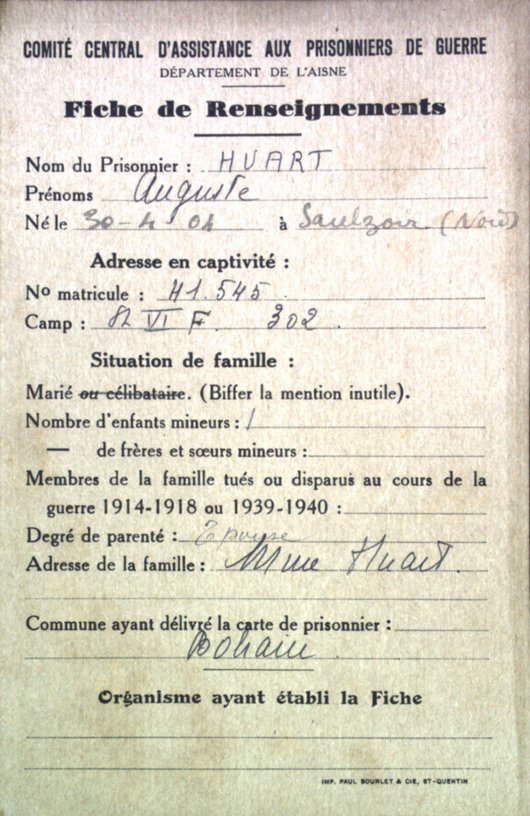 COMITÉ CENTRAL D'ASSISTANCE AUX PRISONNIERS DE GUERRE
DÉPARTEMENT DE L'AISNE
Fiche de Renseignements
Nom du Prisonnier : HUART
Prénoms Auguste
Né le 30-4-04 à Saulzoir (Nord)
Adresse en captivité :
No matricule : 41.545
Camp : VI F 302.
Situation de famille :
Marié ou célibataire. (Biffer la mention inutile).
Nombre d'enfants mineurs : 1
— de frères et sœurs mineurs :
Membres de la famille tués ou disparus au cours de la
guerre 1914-1918 ou 1939-1940 :
Degré de parenté : Epouse
Adresse de la famille : Mme Huart.
Commune ayant délivré la carte de prisonnier :
Bohain.
Organisme ayant établi la Fiche
IMP. PAUL BOURLET & CIE, ST-QUENTIN